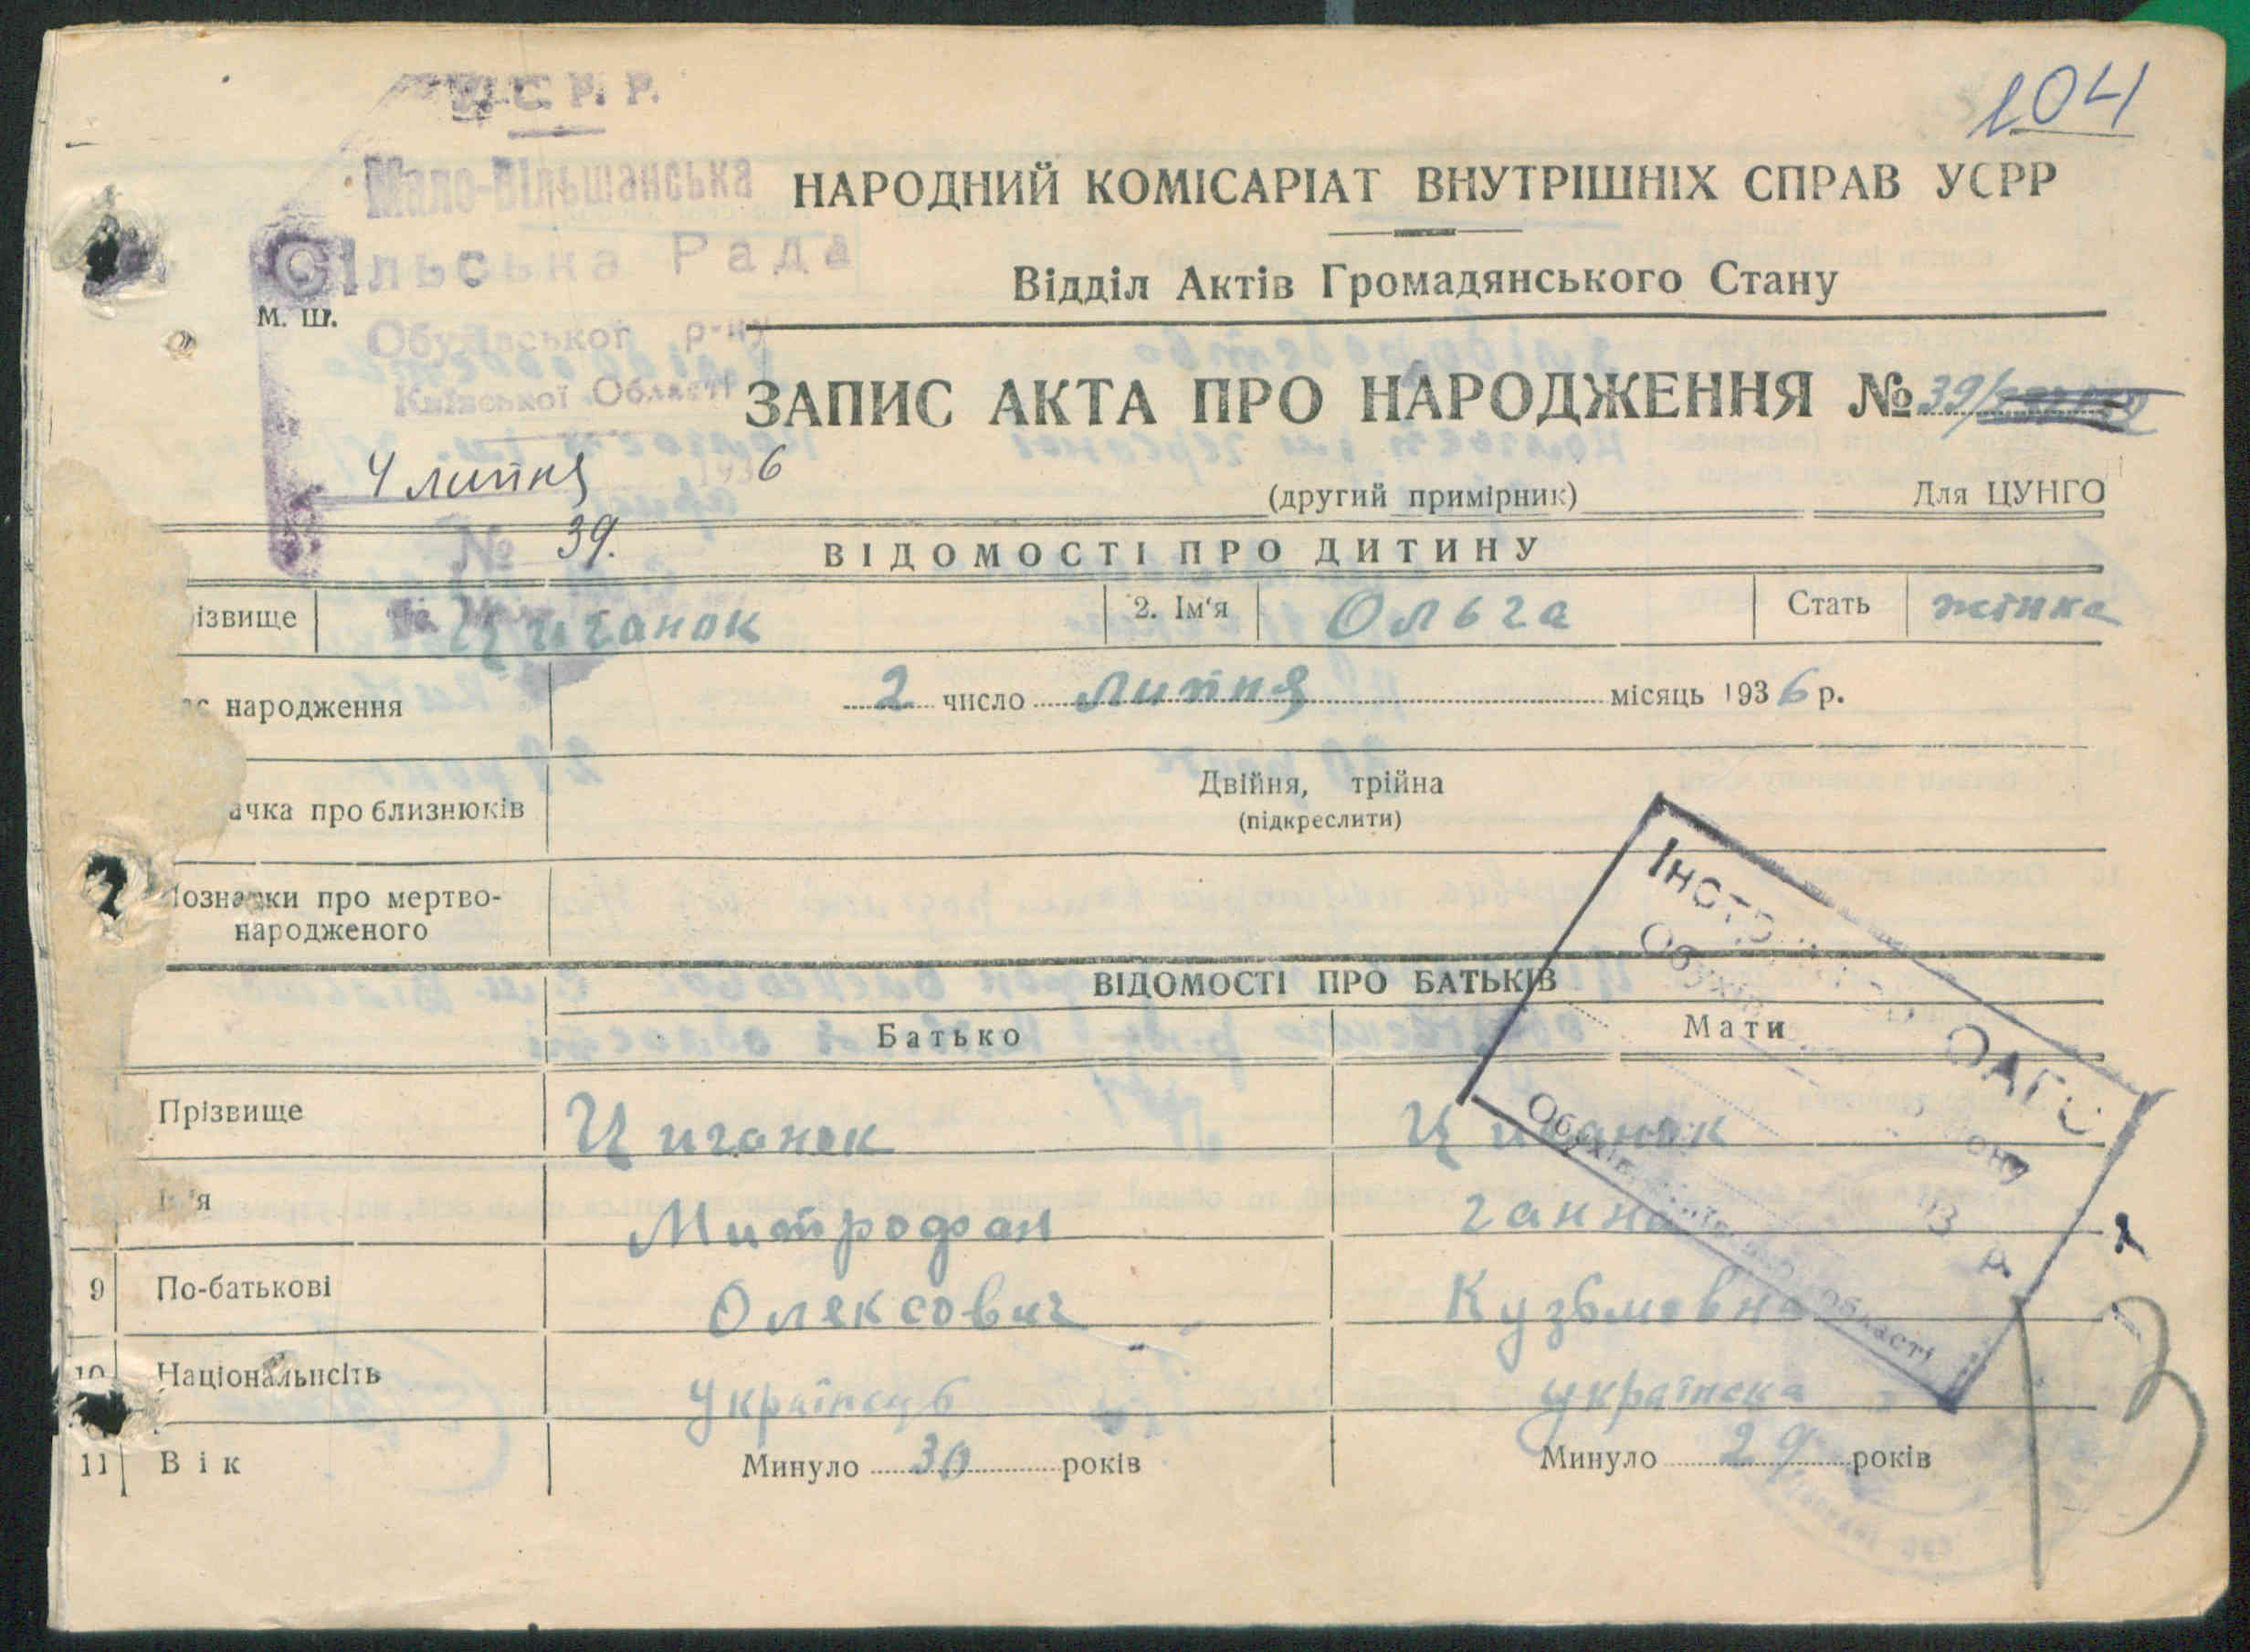 С. Р. Р.
104
Мало-Вільшанська
НАРОДНИЙ КОМІСАРІАТ ВНУТРІШНІХ СПРАВ УСРР
Сільська Рада
Відділ Актів Громадянського Стану
М. Ш.
Обухівської р-ну
Київської Області
ЗАПИС АКТА ПРО НАРОДЖЕННЯ № 39/
4 липня 1936
(другий примірник) Для ЦУНГО
№ 39.
ВІДОМОСТІ ПРО ДИТИНУ
ізвище Циганок 2. Ім'я Ольга Стать жінка
ас народження 2 число липня місяць 1936 р.
ачка про близнюків Двійня, трійна
(підкреслити)
Познарки про мертво-
народженого
ВІДОМОСТІ ПРО БАТЬКІВ
Батько Мати
Прізвище Циганок Циганок
Ім'я Митрофан Ганна
9 По-батькові Олексович Кузьмовна
10 Національнсіть Українець українка
11 Вік Минуло 30 років Минуло 29 років
ОАГС
області
13